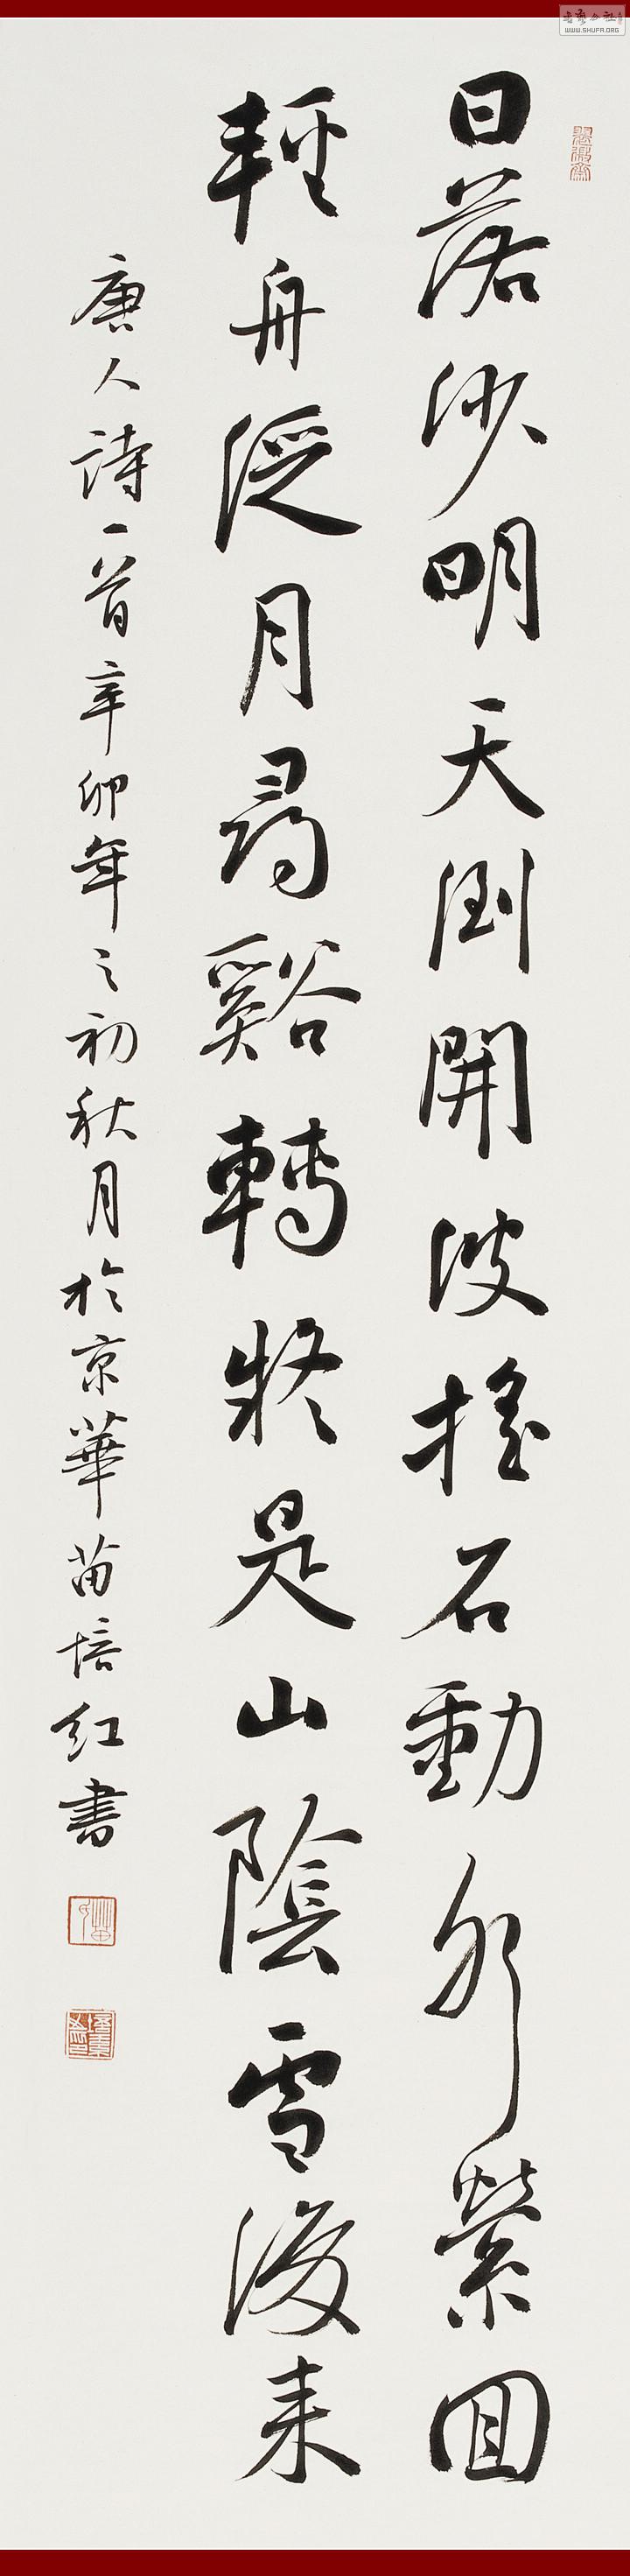 日落沙明天倒開波搖石動水縈回
輕舟泛月尋谿轉疑是山陰雪後來
唐人詩一首辛卯年之初秋月於京華苗培红書
WWW.SHUFA.ORG